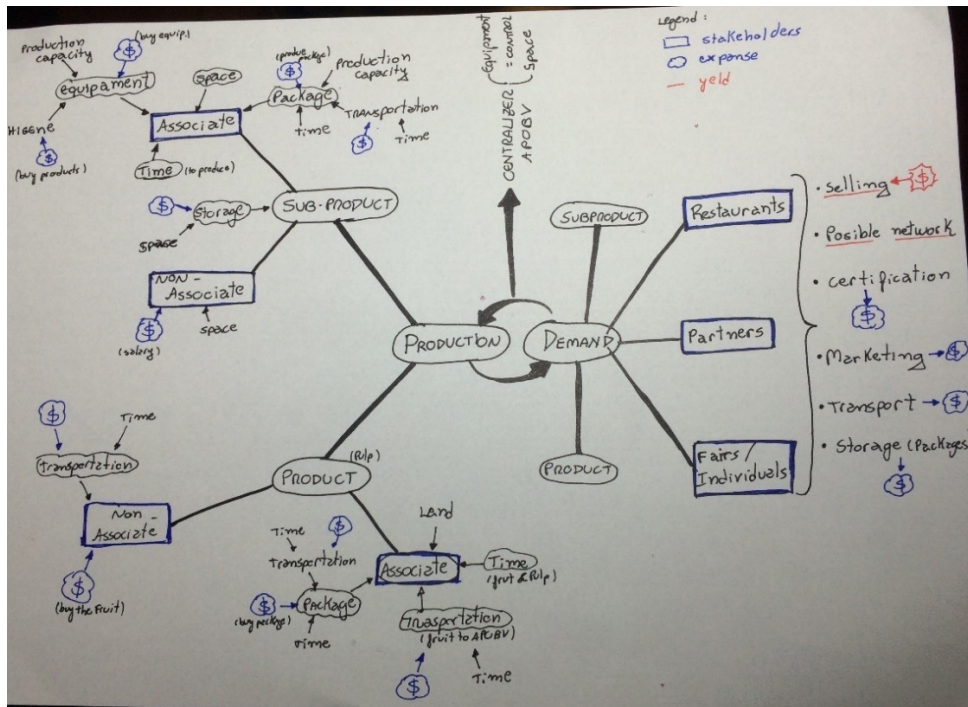 Legend:
stakeholders
expense
yeld
Production
capacity
$
(buy equip.)
equipament
HIGENE
$
(buy products)
Space
Associate
Time (to produce)
$
Package
Production
capacity
Time
TRANSportation
$
Time
SUB-PRODUCT
$
Storage
space
NON-
Associate
$
(salary)
space
CENTRALIZER
APOBV
Equipment
= control
Space
PRODUCTION
DEMAND
SUBPRODUCT
PRODUCT
Restaurants
Partners
Fairs/
Individuals
• Selling $
• Posible network
• Certification
$
• Marketing $
• Transport $
• Storage (Packages
$
PRODUCT
(Pulp)
$
Time
Transportation
Non-
Associate
$
(buy the Fruit)
Land
Associate
Time
(frut & Pulp)
Time
$
Transportation
$
(buy package)
Package
Time
Trasportation
(fruit to APOBV)
$
Time